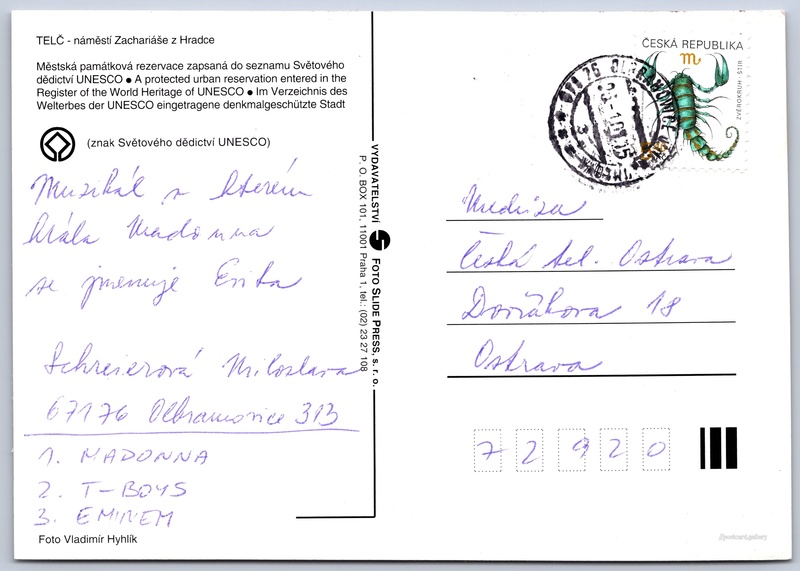 TELČ - náměstí Zachariáše z Hradce
Městská památková rezervace zapsaná do seznamu Světového
dědictví UNESCO ● A protected urban reservation entered in the
Register of the World Heritage of UNESCO ● Im Verzeichnis des
Welterbes der UNESCO eingetragene denkmalgeschützte Stadt
(znak Světového dědictví UNESCO)
Muzikál v kterém
hrála Madonna
se jmenuje Evita
Schreierová Miloslava
67176 Olbramovice 313
1. MADONNA
2. T-BOYS
3. EMINEM
Foto Vladimír Hyhlík
VYDAVATELSTVÍ FOTO SLIDE PRESS, s. r. o.
P. O. BOX 101, 11001 Praha 1, tel.: (02) 23 27 108
ČESKÁ REPUBLIKA
ZVĚROKRUH - ŠTÍR
671 76 OLBRAMOVICE
Medúza
Česká tel. Ostrava
Dvořákova 18
Ostrava
72920